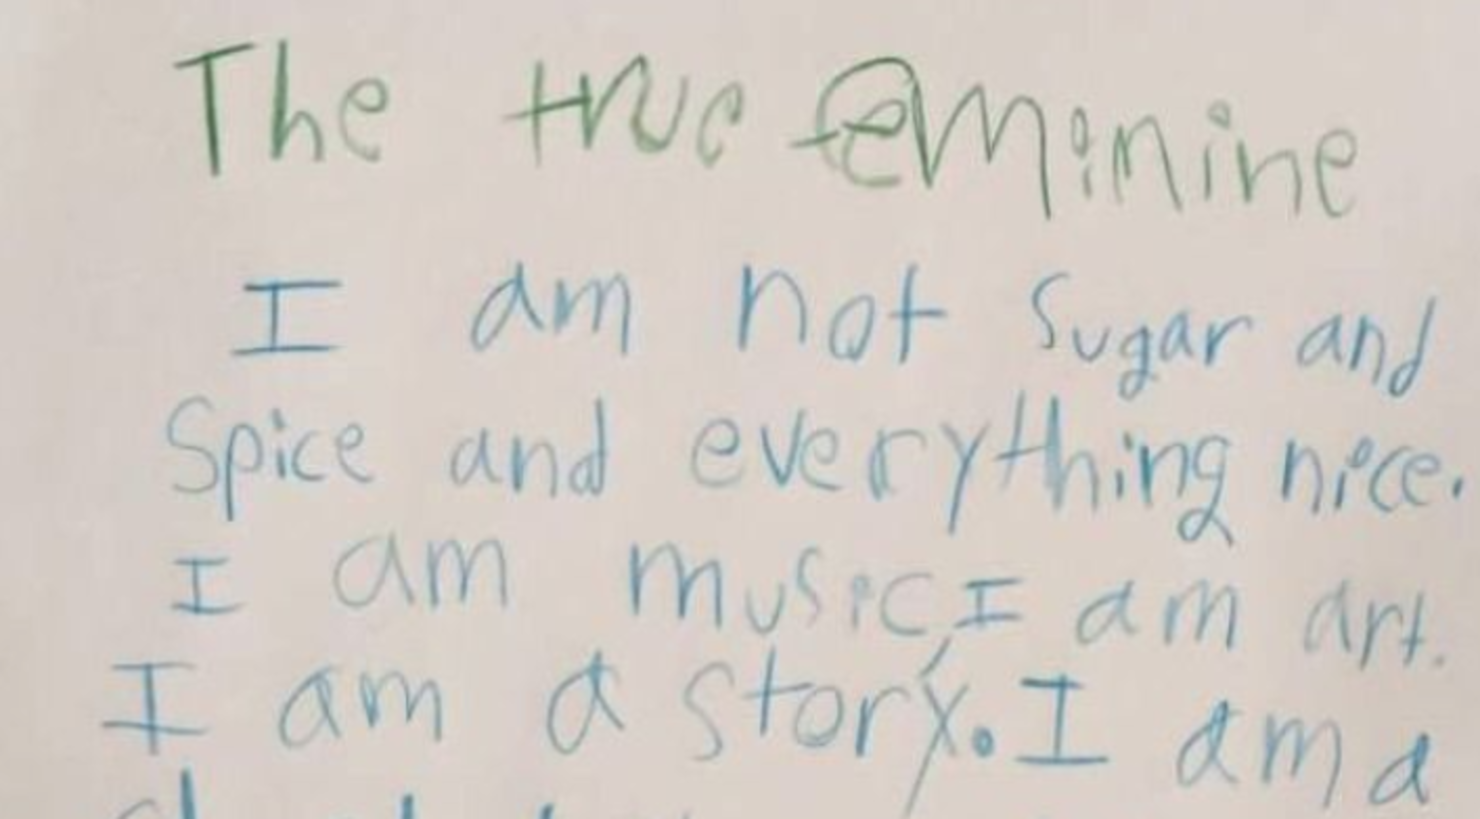 The true feminine
I am not sugar and
Spice and everything nice.
I am music, I am art.
I am a story. I am a